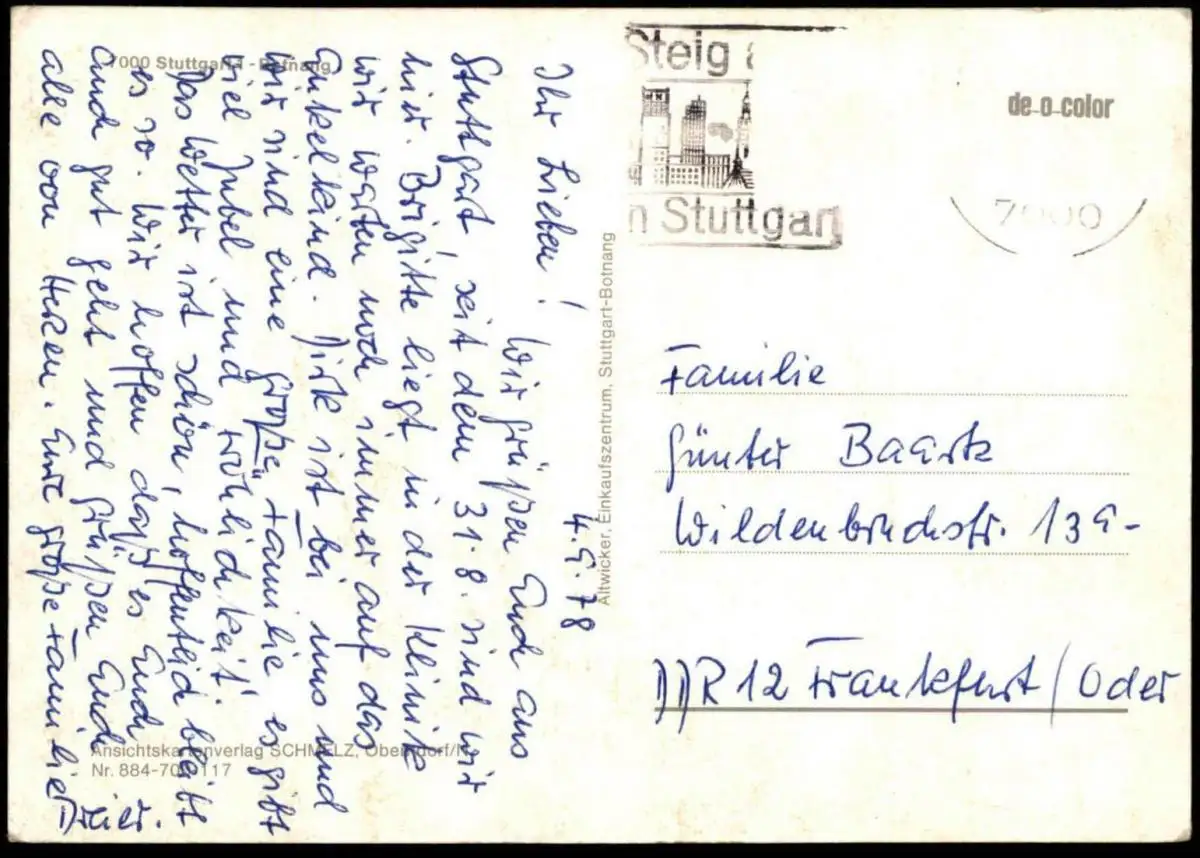 4.9.78
Ihr Lieben!
Wir grüßen Euch aus
Stuttgart, seit dem 31.8. sind wir
hier. Brigitte liegt in der Klinik
wir warten noch immer auf das
Enkelkind. Dirk ist bei uns und
wir sind eine "große" Familie es gibt
viel Jubel und Fröhlichkeit.
Das Wetter ist schön, hoffentlich bleibt
es so. Wir hoffen daß es Euch
auch gut geht und grüßen Euch
alle von Herzen. Eure große Familie
7000 Stuttgart 1 - Botnang
Ansichtskartenverlag SCHMELZ, Oberndorf/N.
Altwicker, Einkaufszentrum, Stuttgart-Botnang
Steig a
in Stuttgart
de-o-color
7000
Familie
Günter
Wildenbruchstr.
DDR 12 Frankfurt/Oder